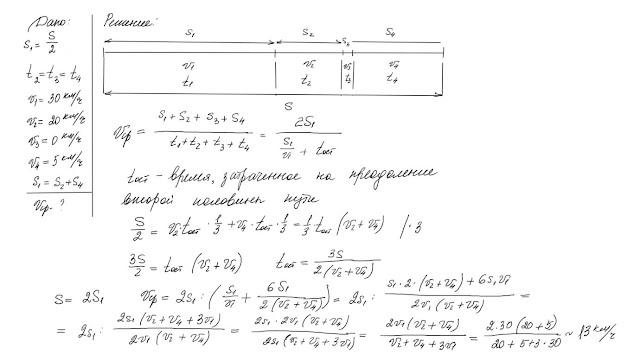 Дано:
S₁ = S/2
t₂ = t₃ = t₄
v₁ = 30 км/ч
v₂ = 20 км/ч
v₃ = 0 км/ч
v₄ = 5 км/ч
S₁ = S₂ + S₄
Vср - ?
Решение:
S₁ S₂ S₃ S₄
v₁ v₂ v₃ v₄
t₁ t₂ t₃ t₄
S
Vср = (S₁ + S₂ + S₃ + S₄)/(t₁ + t₂ + t₃ + t₄) = 2S₁/(S₁/v₁ + tост)
tост - время, затраченное на преодоление
второй половины пути
S/2 = v₂·tост · 1/3 + v₄ · tост · 1/3 = 1/3 tост (v₂ + v₄) | · 3
3S/2 = tост (v₂ + v₄) tост = 3S/(2(v₂ + v₄))
S = 2S₁ Vср = 2S₁ : (S₁/v₁ + 6S₁/(2(v₂ + v₄))) = 2S₁ : (S₁ · 2 · (v₂ + v₄) + 6S₁v₁)/(2v₁(v₂ + v₄)) =
= 2S₁ : 2S₁(v₂ + v₄ + 3v₁)/(2v₁(v₂ + v₄)) = 2S₁ · 2v₁(v₂ + v₄)/(2S₁(v₂ + v₄ + 3v₁)) = 2v₁(v₂ + v₄)/(v₂ + v₄ + 3v₁) = 2·30(20 + 5)/(20 + 5 + 3·30) ~ 13 км/ч